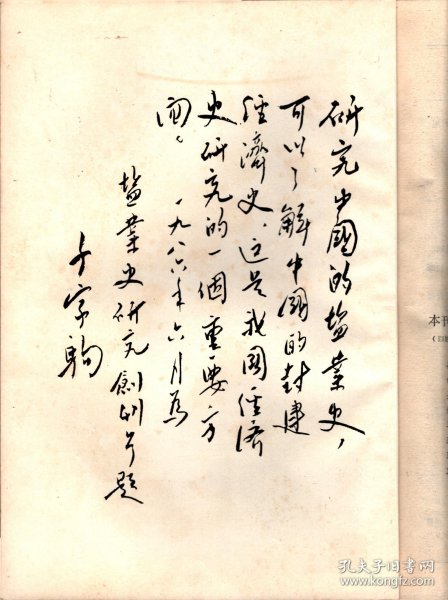 研究中國的盐業史，
可以了解中國的封建
经濟史，这是我國经济
史研究的一個重要方
面。
一九八六年六月为
盐業史研究創刊号題
千家驹
本刊
孔夫子旧书网
www.kongfz.com